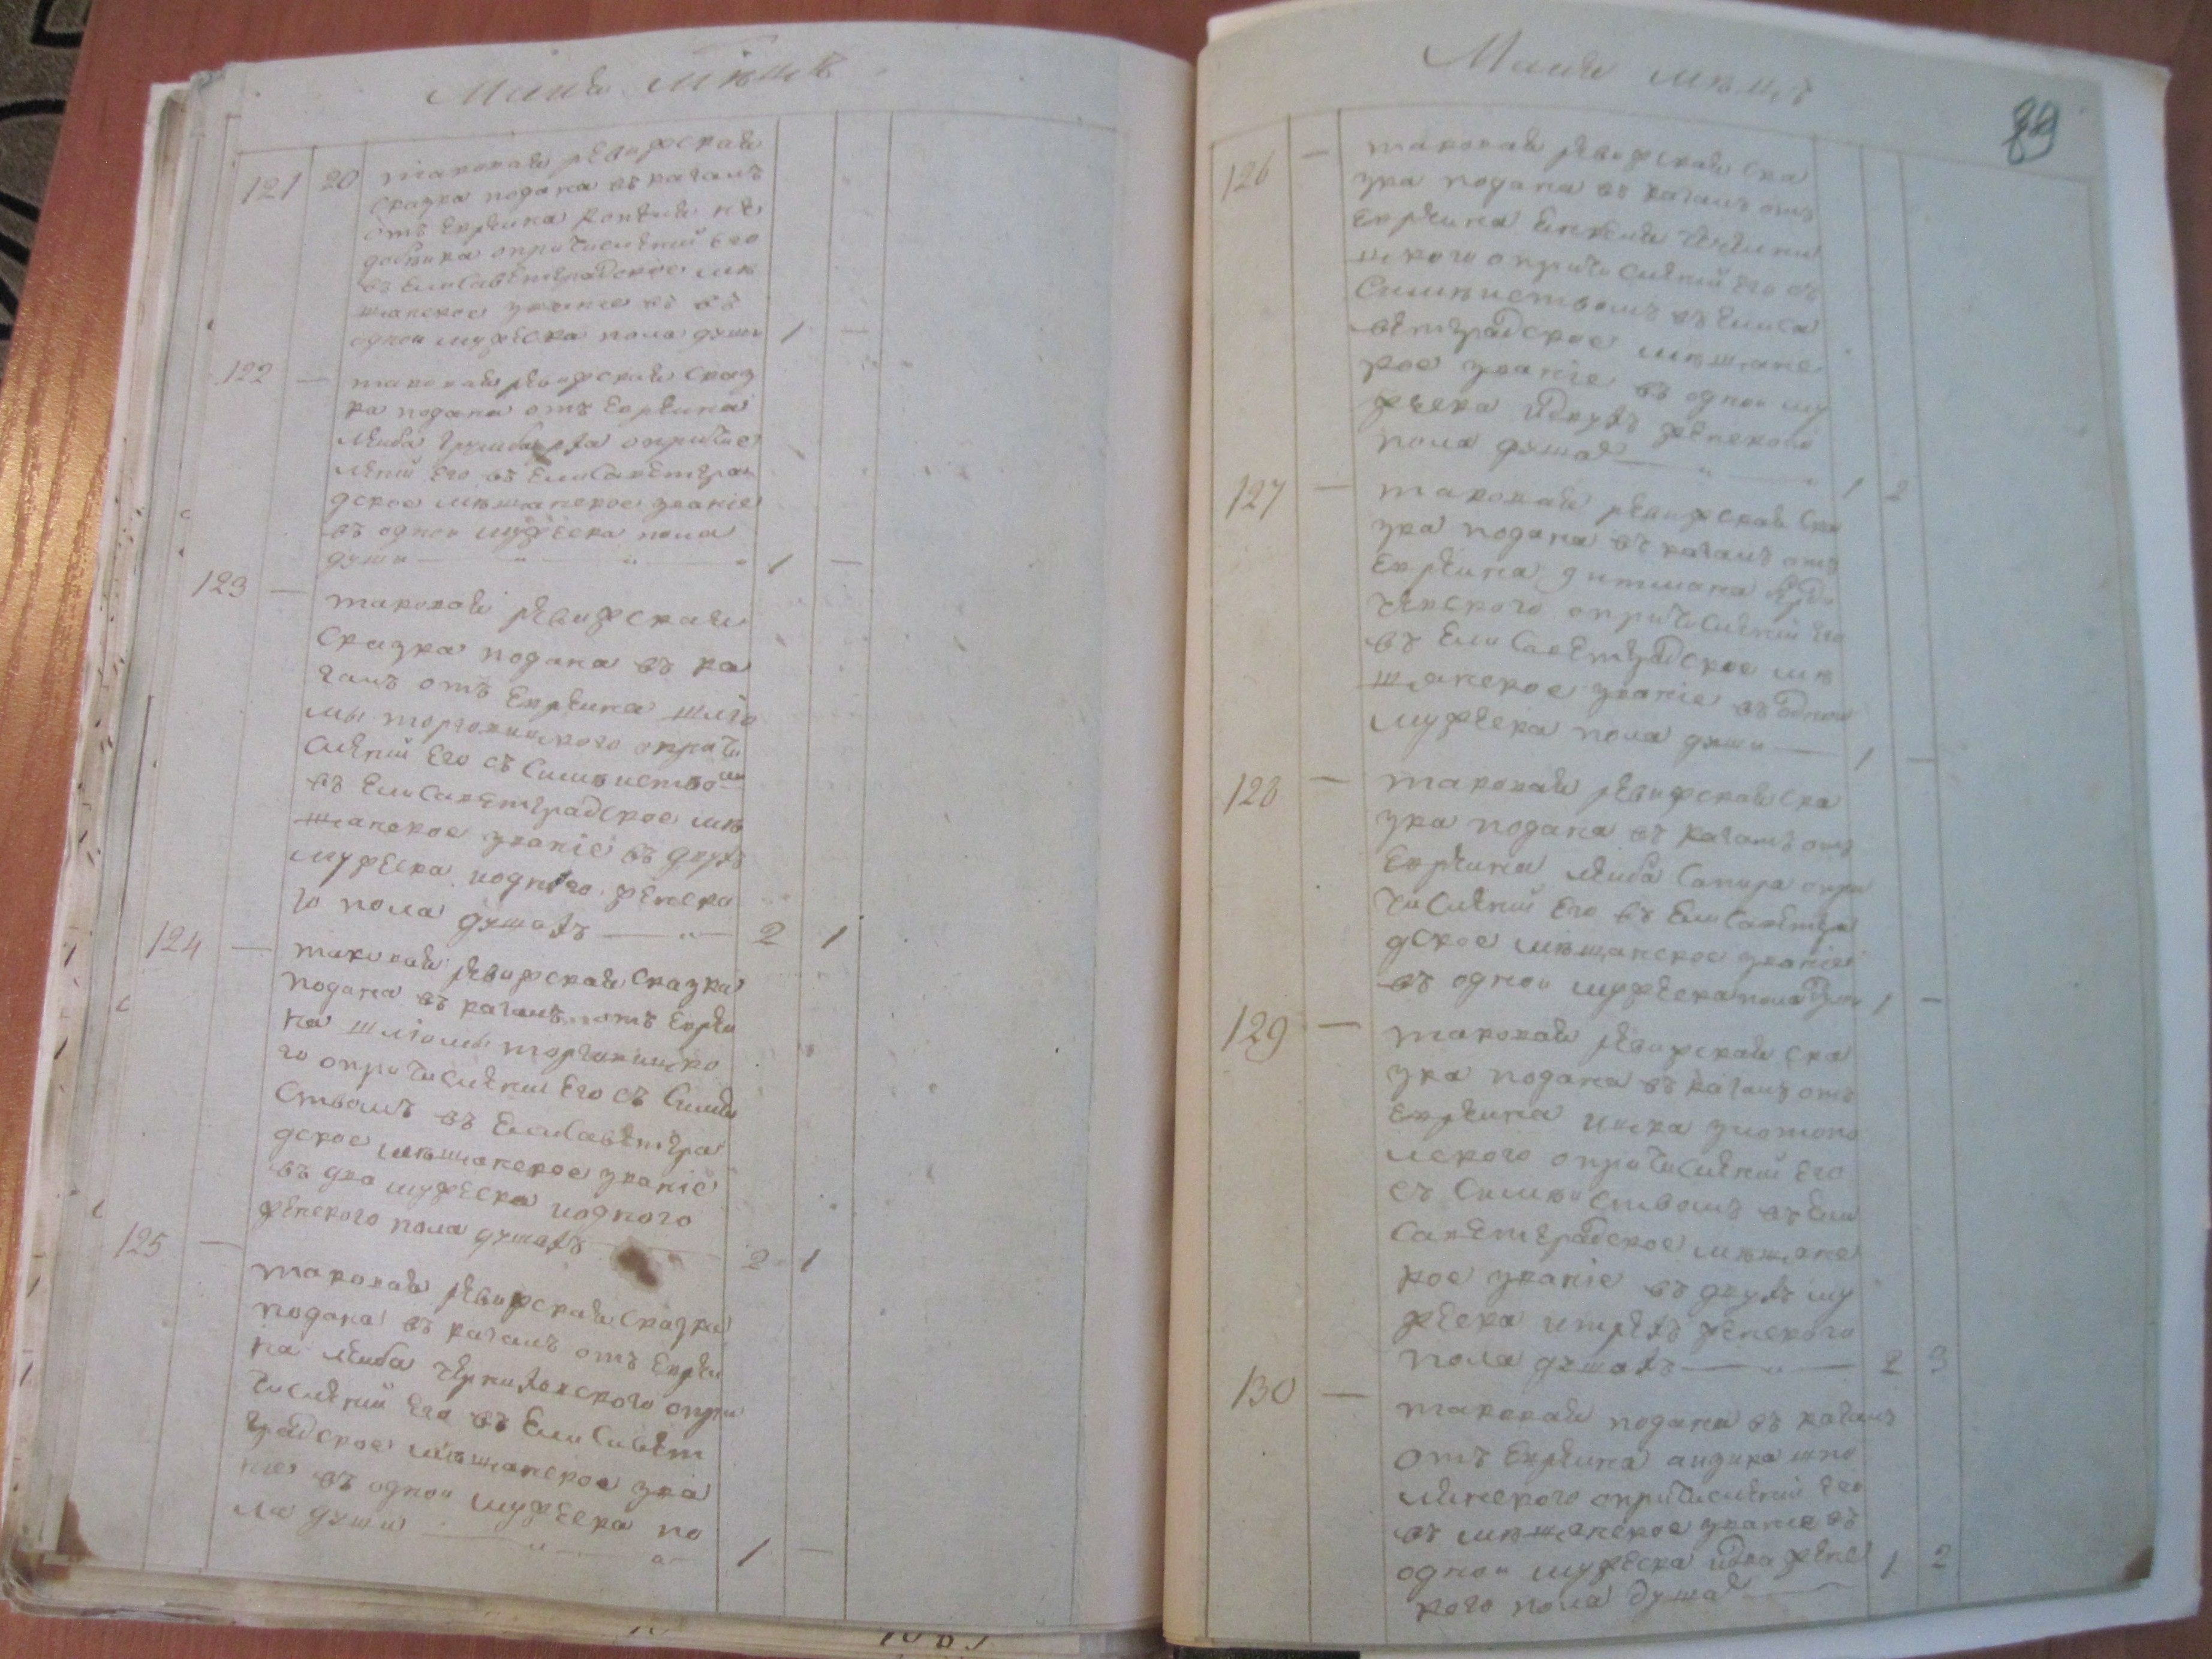 Маия мѣсяца
121 20 таковая ревизская
сказка подана въ кагалъ
отъ Евреина
о причислении его
въ Елисаветградское мѣ
щанское звание въ
одной мужеска пола души 1 —
122 — таковая ревизская сказ
ка подана отъ Евреина
Лейба о причис
лении его въ Елисаветгра
дское мѣщанское звание
въ одной мужеска пола
души — " — " — " 1 —
123 — таковая ревизская
сказка подана въ ка
галъ отъ Евреина шліо
мы торговицкого опричи
слении его съ симѣиством
въ Елисаветградское мѣ
щанское звание въ двухъ
мужеска иодного женска
го пола душахъ — " — 2 1
124 — таковая ревизская сказка
подана въ кагалъ отъ Евреи
на шліомы торговицко
го опричислении его съ симѣи
ствомъ въ Елисаветгра
дское мѣщанское звание
въ два мужеска иодного
женского пола душахъ — 2 1
125 — таковая ревизская сказка
подана въ кагалъ отъ Евреи
на Лейба черняховского опри
числении его въ Елисавет
градское мѣщанское зва
ние въ одной мужеска по
ла души — " — " — 1 —
Маия мѣсяца
89
126 — таковая ревизская ска
зка подана въ кагалъ отъ
Евреина
опричислении его съ
симѣиствомъ въ Елиса
ветградское мѣщанс
кое звание въ одной му
жеска идвухъ женского
пола душахъ — " — " 1 2
127 — таковая ревизская ска
зка подана въ кагалъ отъ
Евреина
опричислении его
въ Елисаветградское мѣ
щанское звание въ одной
мужеска пола души — 1 —
128 — таковая ревизская ска
зка подана въ кагалъ отъ
Евреина Лейба Сапира опри
числении его въ Елисаветгра
дское мѣщанское звание
въ одной мужеска пола души 1 —
129 — таковая ревизская ска
зка подана въ кагалъ отъ
Евреина ицка злотопо
лского опричислении его
съ симѣиствомъ въ Ели
саветградское мѣщанс
кое звание въ двухъ му
жеска итрехъ женского
пола душахъ — " — 2 3
130 — таковая подана въ кагалъ
отъ Евреина аизика шпо
лянского опричислении его
въ мѣщанское звание въ
одной мужеска идва женс
кого пола душах — 1 2